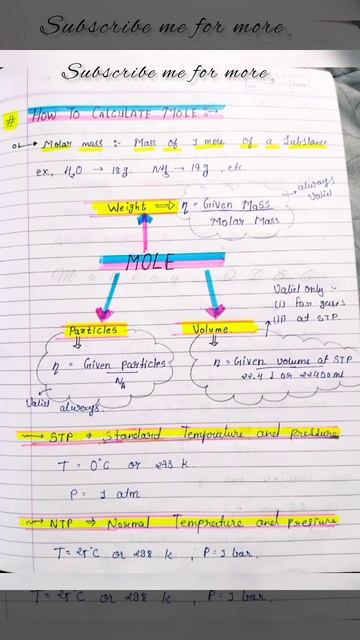 Subscribe me for more
Subscribe me for more
# HOW TO CALCULATE MOLE :→
Molar mass :- Mass of 1 mole of a Substance
ex, H2O → 18g. NH3 → 19g, etc.
Weight ⇒ η = Given Mass
Molar Mass
→ always
Valid
MOLE
Valid only :-
(i) For gases
(ii) at STP.
Particles
Volume
η = Given particles
NA
η = Given volume at STP
22.4 l or 22400 ml
Valid always.
STP ⇒ Standard Temprature and pressure
T = 0°C or 273 k
P = 1 atm.
NTP ⇒ Normal Temprature and pressure
T = 25°C or 298 k , P = 1 bar.
T = 25°C or 298 k , P = 1 bar.